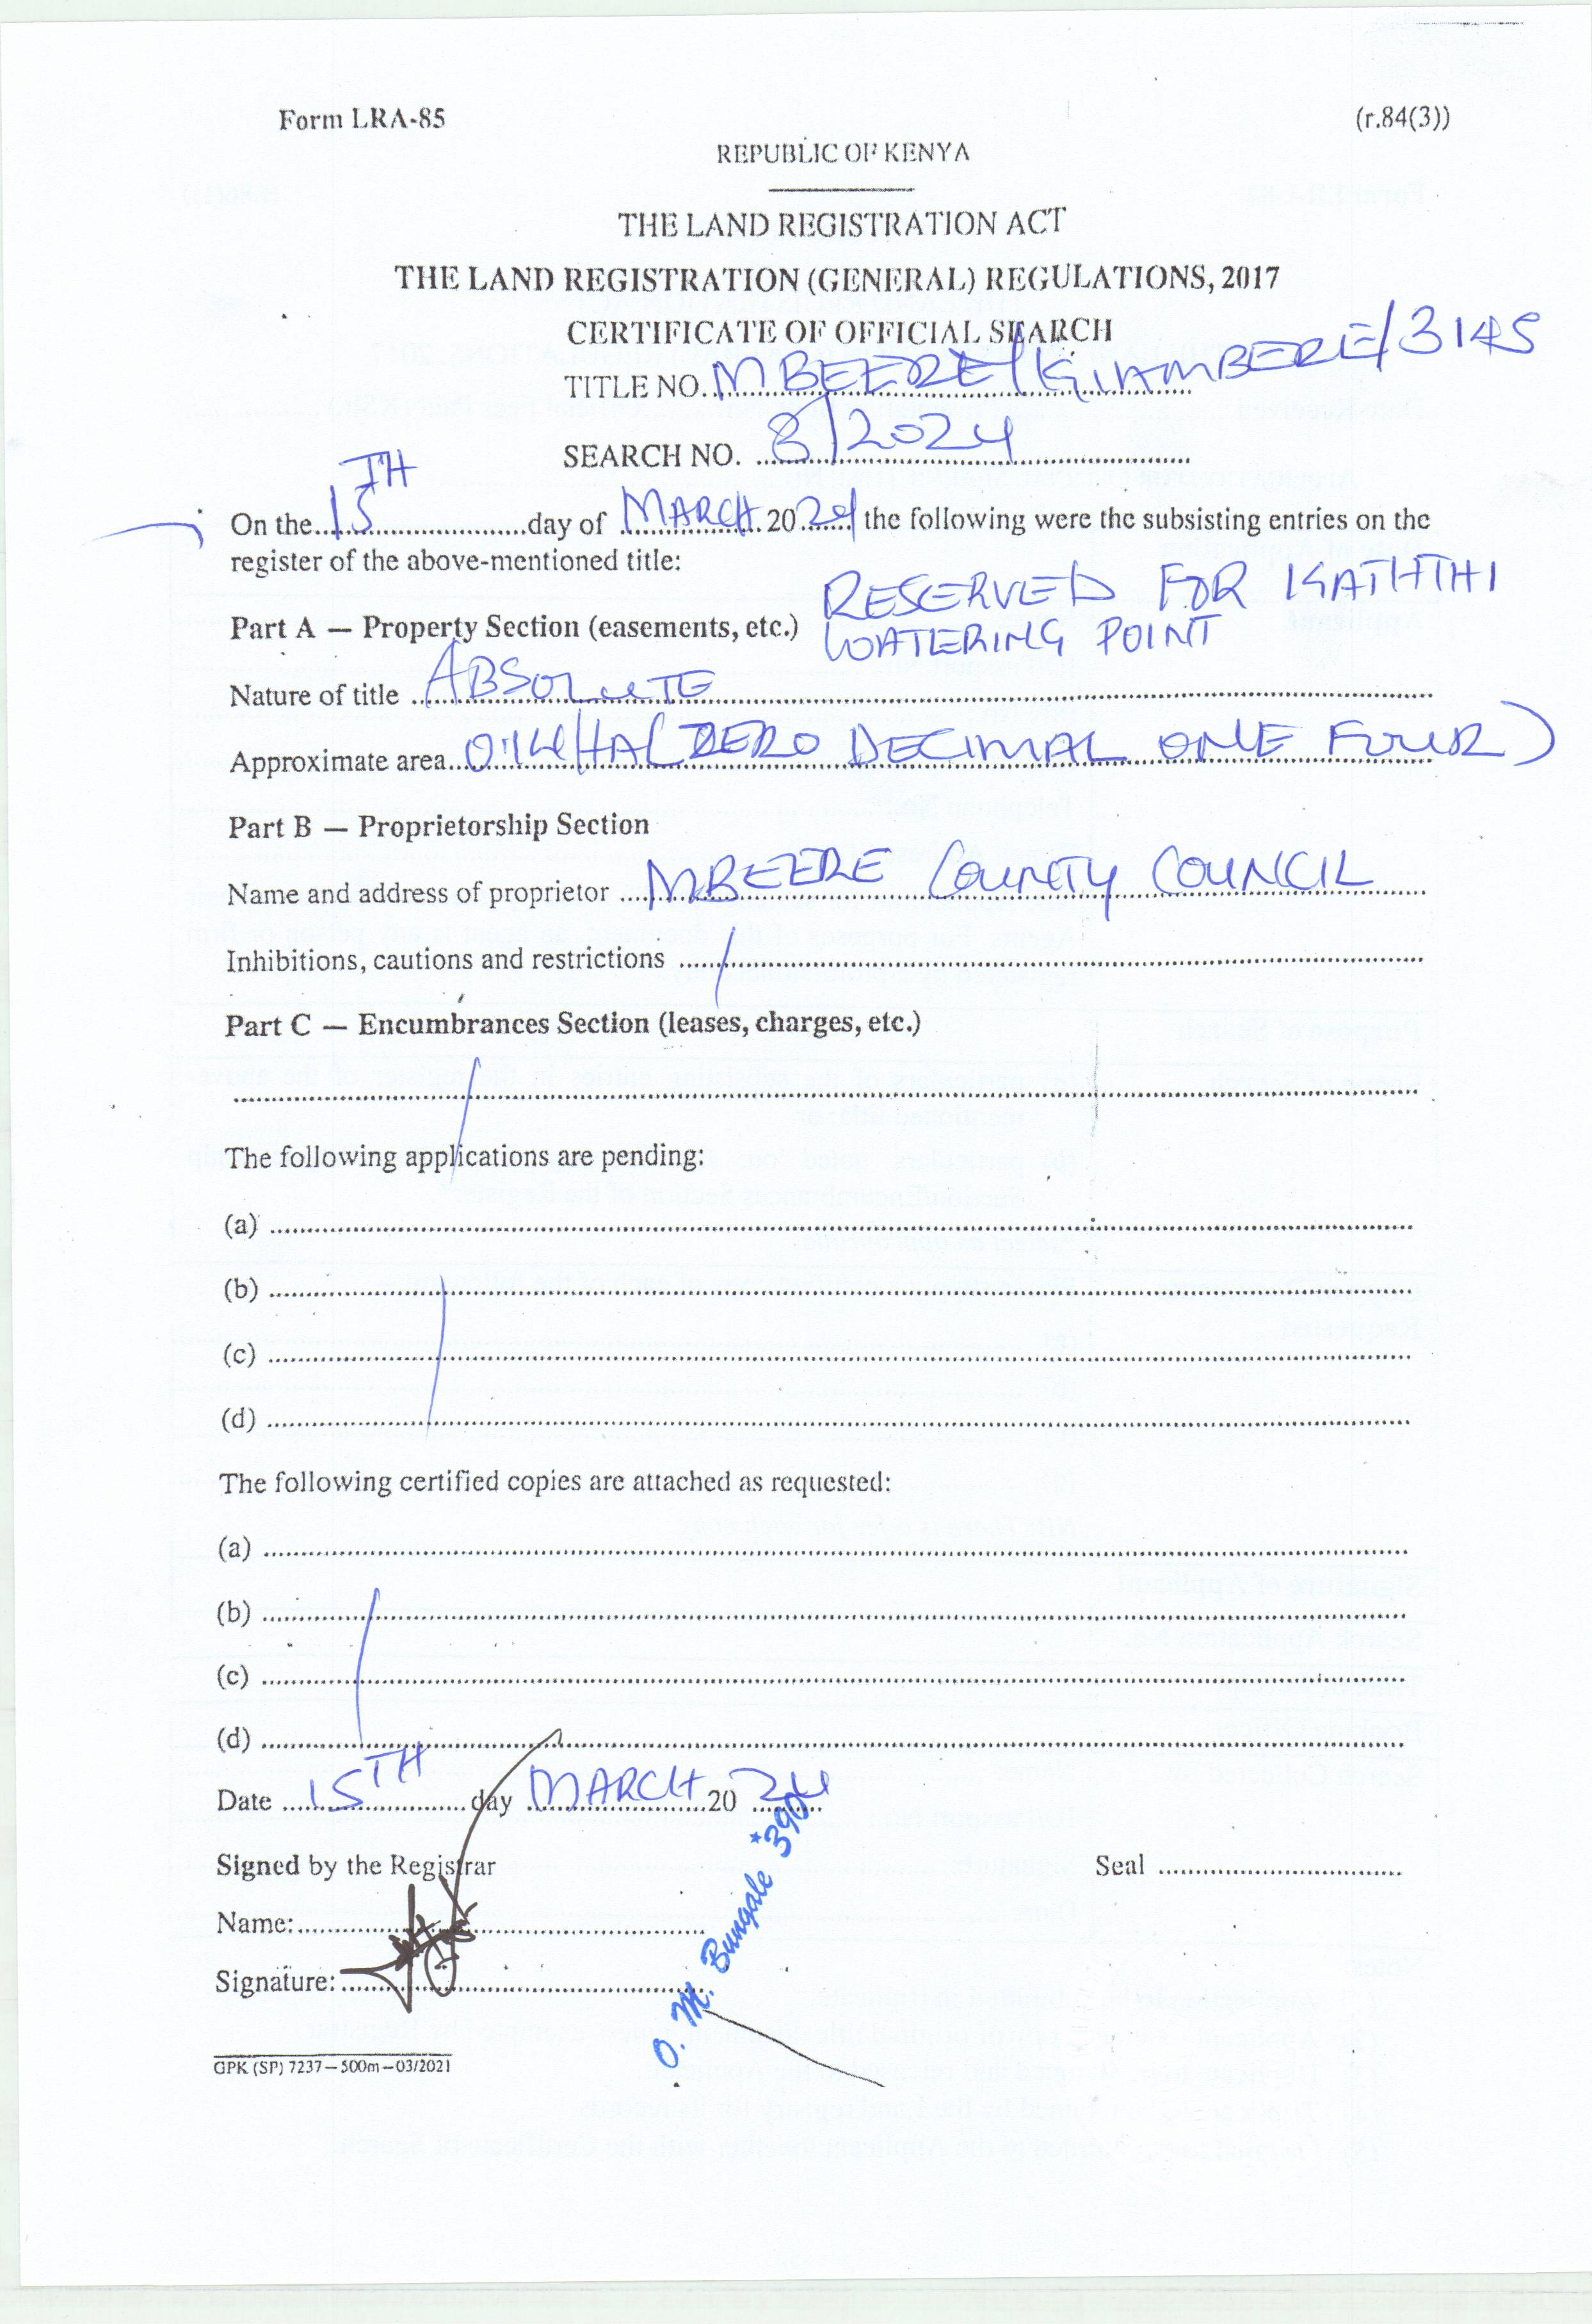 Form LRA-85 (r.84(3))
REPUBLIC OF KENYA
THE LAND REGISTRATION ACT
THE LAND REGISTRATION (GENERAL) REGULATIONS, 2017
CERTIFICATE OF OFFICIAL SEARCH
TITLE NO. MBEERE/KIAMBERE/3145
SEARCH NO. 8/2024
On the 15TH day of MARCH 2024 the following were the subsisting entries on the
register of the above-mentioned title:
Part A — Property Section (easements, etc.) RESERVED FOR
WATERING POINT
Nature of title ABSOLUTE
Approximate area 0.14HA (ZERO DECIMAL ONE FOUR)
Part B — Proprietorship Section
Name and address of proprietor MBEERE COUNTY COUNCIL
Inhibitions, cautions and restrictions /
Part C — Encumbrances Section (leases, charges, etc.)
The following applications are pending:
(a)
(b)
(c)
(d)
The following certified copies are attached as requested:
(a)
(b)
(c)
(d)
Date 15TH day MARCH 20 24
Signed by the Registrar Seal
Name:
Signature:
O. M. Bungale *390
GPK (SP) 7237—500m—03/2021